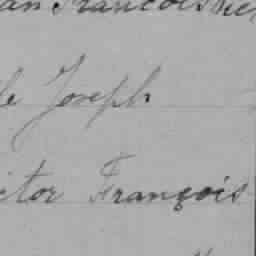 an François Re
le Joseph
ictor François